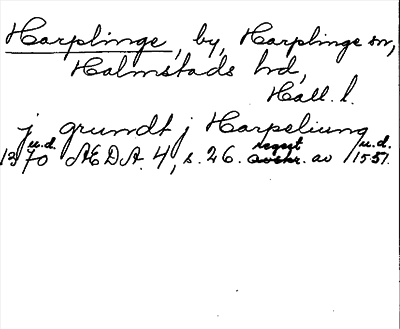 Harplinge, by, Harplinge sn,
Halmstads hd,
Hall. l.
j grundt j Harpeliung
u.d. regest u.d.
1370 ÆDA 4, s. 26. avskr. av 1551.